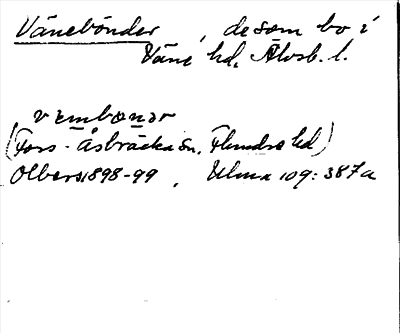 Vänebönder, de som bo i
Väne hd, Älvsb. l.
vɛmbønər
(Fors-Åsbräcka sn, Flundre hd)
Olbers 1898-99, Ulma 109:387a